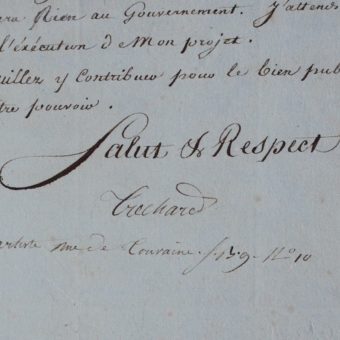 era Rien au Gouvernement. J'attends
l'éxécution de Mon projet.
uillez y Contribuer pour le bien pub
tre pouvoir.
Salut & Respect
Trechard
rue de Touraine. f. No 10